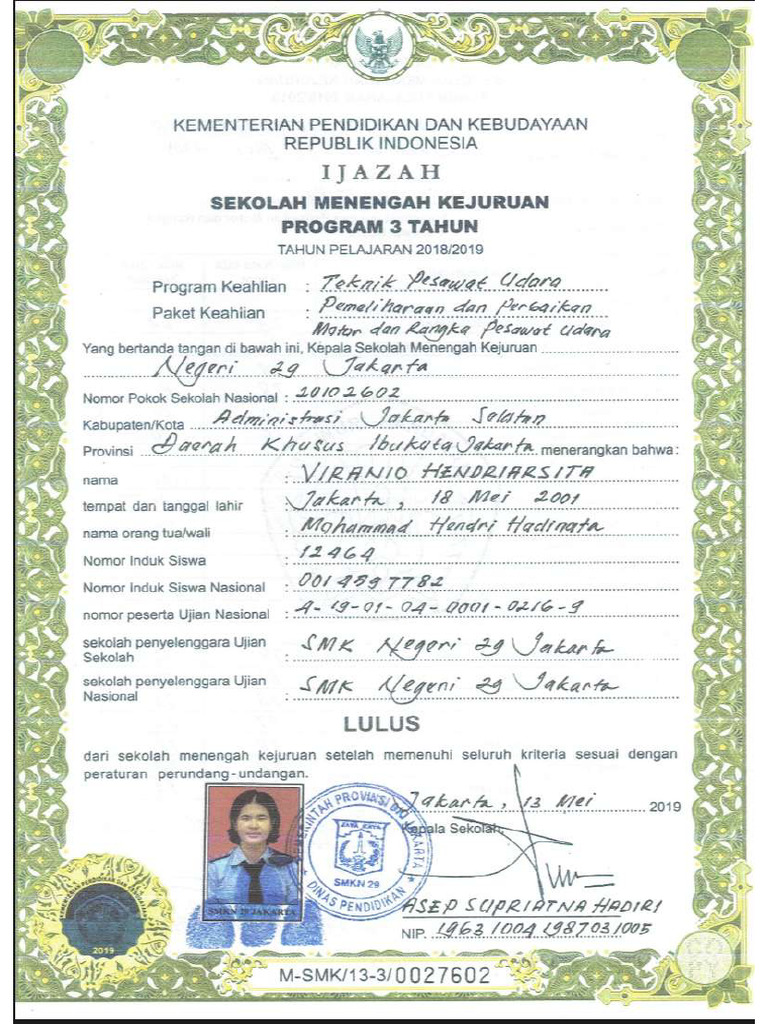 KEMENTERIAN PENDIDIKAN DAN KEBUDAYAAN
REPUBLIK INDONESIA
IJAZAH
SEKOLAH MENENGAH KEJURUAN
PROGRAM 3 TAHUN
TAHUN PELAJARAN 2018/2019
Program Keahlian : Teknik Pesawat Udara
Paket Keahlian : Pemeliharaan dan Perbaikan
Motor dan Rangka Pesawat Udara
Yang bertanda tangan di bawah ini, Kepala Sekolah Menengah Kejuruan
Negeri 29 Jakarta
Nomor Pokok Sekolah Nasional : 20102602
Kabupaten/Kota Administrasi Jakarta Selatan
Provinsi Daerah Khusus Ibukota Jakarta menerangkan bahwa:
nama : VIRANIO HENDRIARSITA
tempat dan tanggal lahir : Jakarta, 18 Mei 2001
nama orang tua/wali : Mohammad Hendri Hadinata
Nomor Induk Siswa : 12464
Nomor Induk Siswa Nasional : 0014597782
nomor peserta Ujian Nasional : 4-19-01-04-0001-0216-9
sekolah penyelenggara Ujian
Sekolah : SMK Negeri 29 Jakarta
sekolah penyelenggara Ujian
Nasional : SMK Negeri 29 Jakarta
LULUS
dari sekolah menengah kejuruan setelah memenuhi seluruh kriteria sesuai dengan
peraturan perundang-undangan.
Jakarta, 13 Mei 2019
Kepala Sekolah,
PEMERINTAH PROVINSI DKI JAKARTA
JAYA RAYA
SMKN 29
DINAS PENDIDIKAN
SMKN 29 JAKARTA
ASEP SUPRIATNA HADIRI
NIP. 196310041987031005
2019
M-SMK/13-3/0027602
COPY